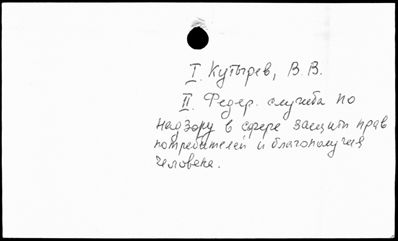 I. Кутырев, В. В.
II. Федер. служба по
надзору в сфере защиты прав
потребителей и благополучия
человека.